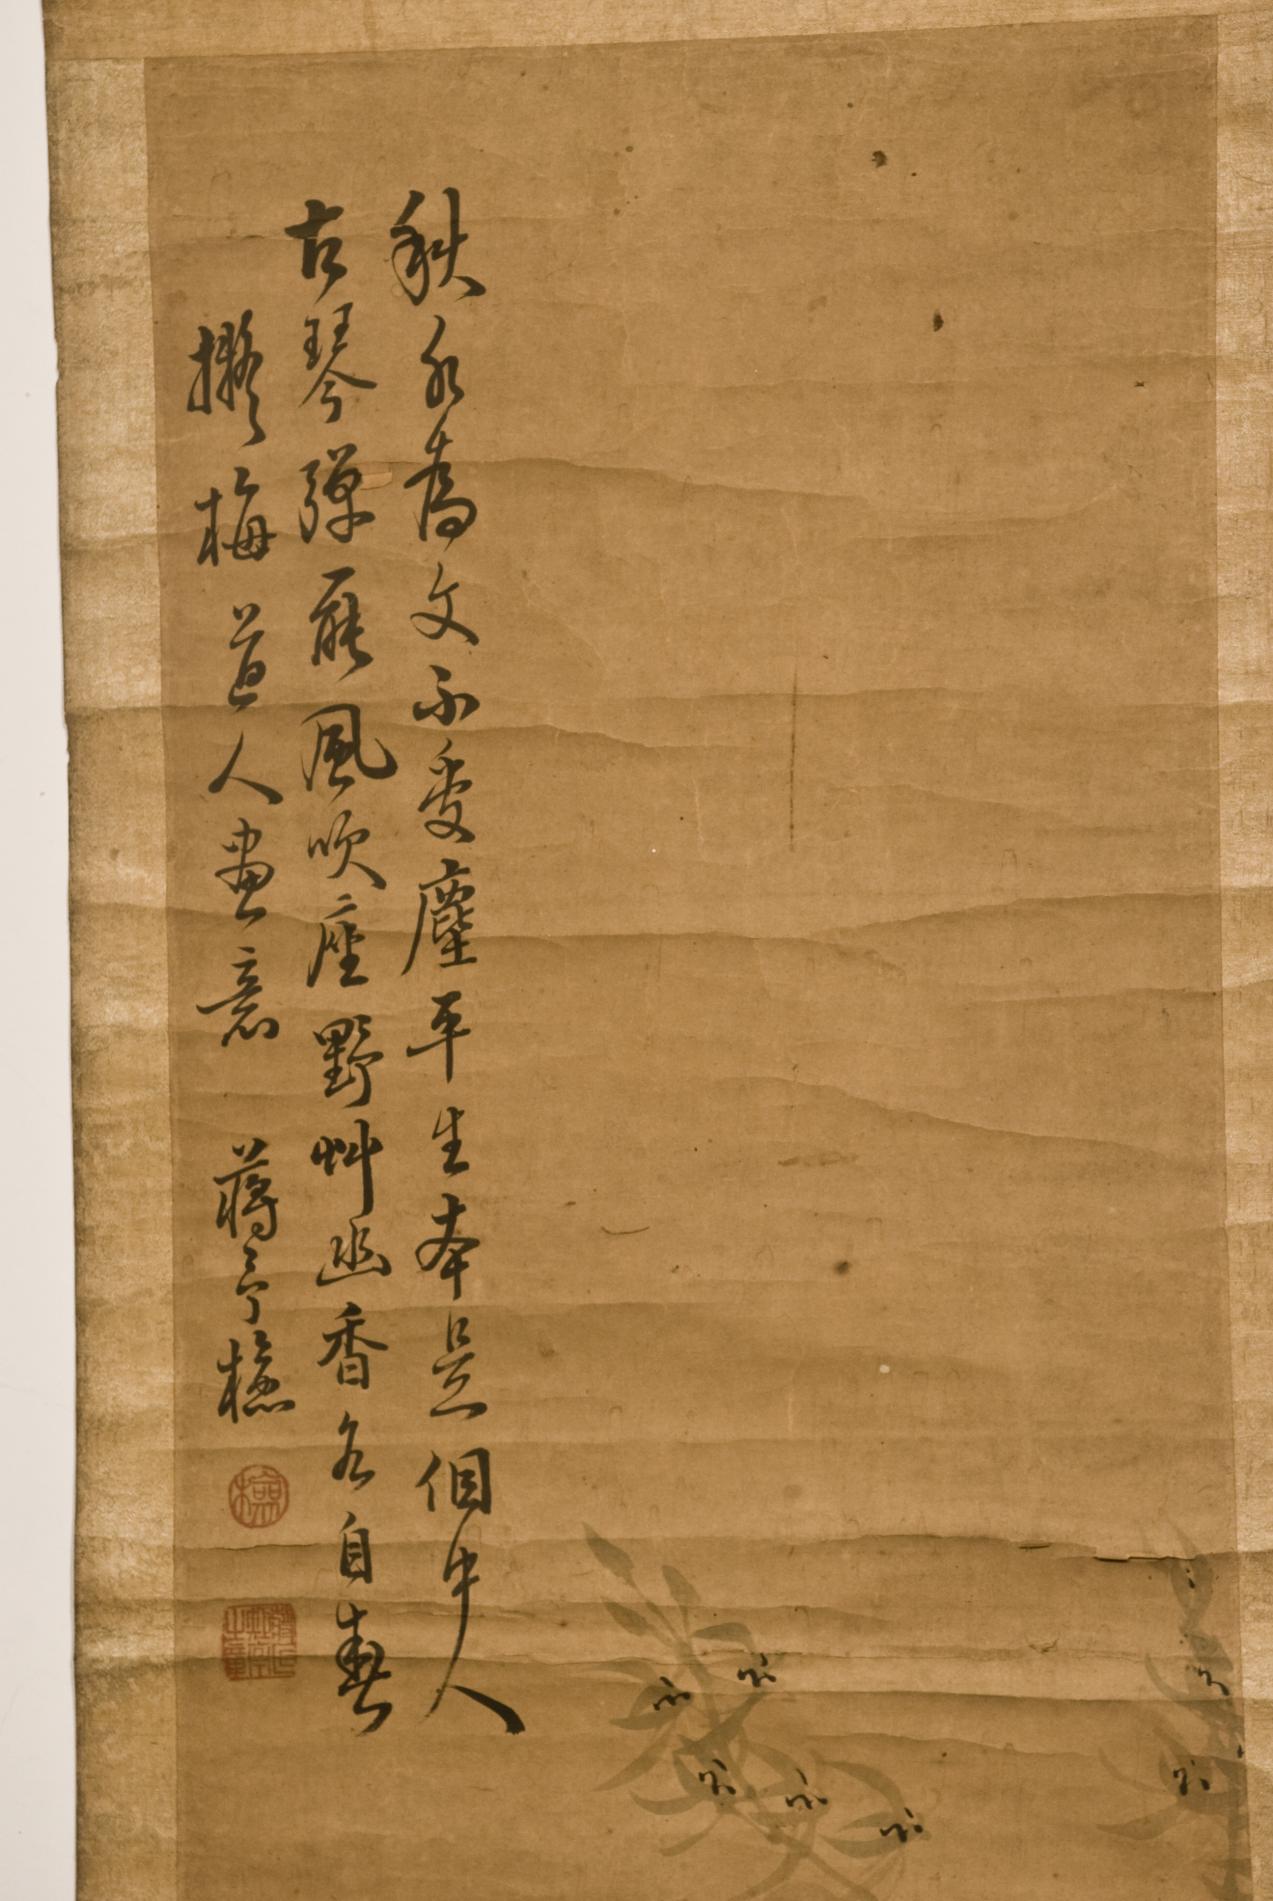 秋水為文不受塵平生本是個中人
古琴彈罷風吹座野艸幽香各自春
擬梅道人畫意 蔣予檢
檢